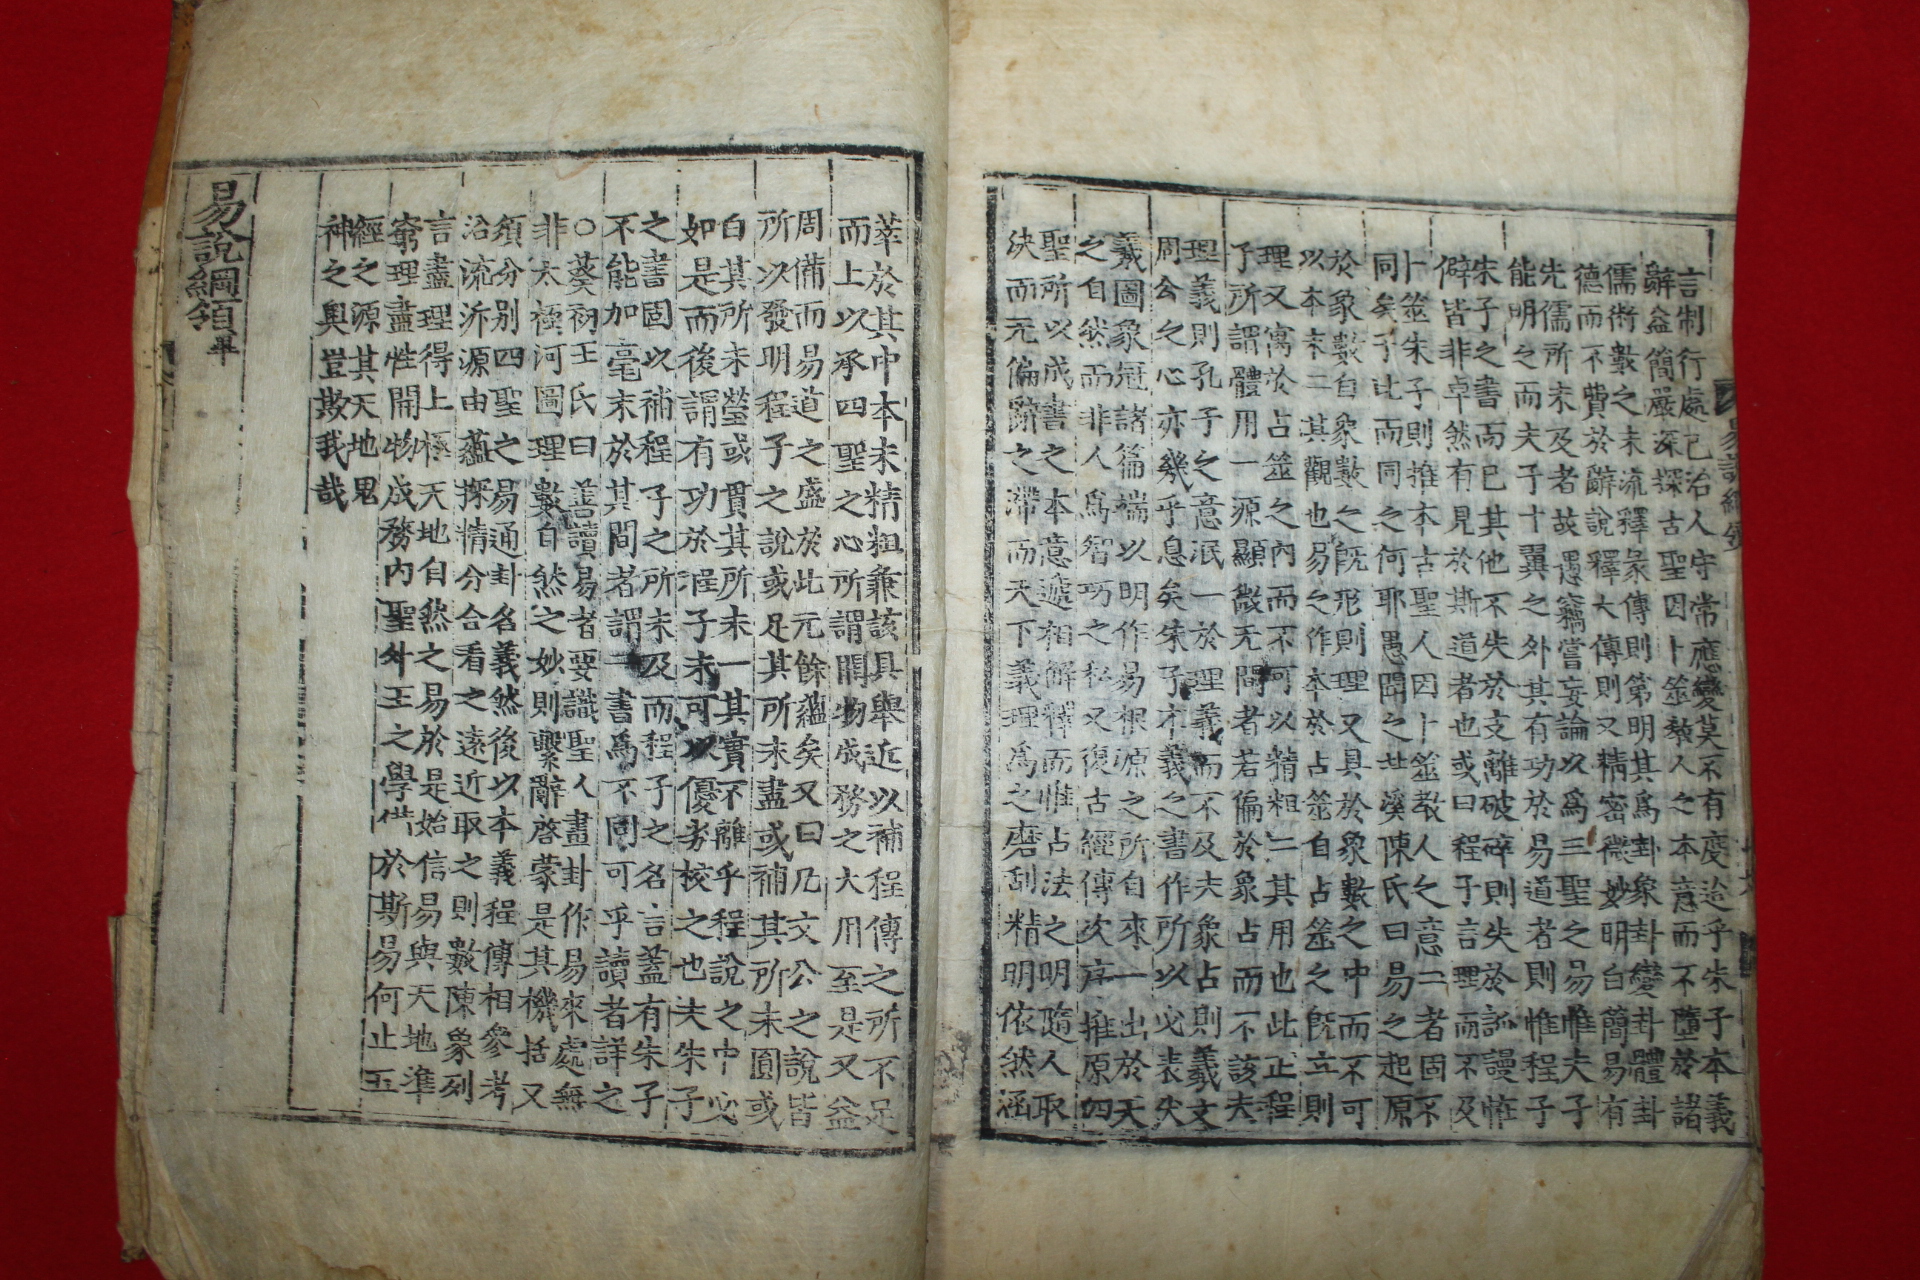 言制行處己治人守常應變莫不有度迨乎朱子本義
辭益簡嚴深探古聖因卜筮敎人之本意而不墮於諸
儒術數之末流釋彖傳則第明其爲卦象卦變卦體卦
德而不費於辭說釋大傳則又精密微妙明白簡易有
先儒所未及者故愚竊嘗妄論以爲三聖之易惟夫子
能明之而夫子十翼之外其有功於易道者則惟程子
朱子之書而已其他不失於支離破碎則失於訛謾恠
僻皆非卓然有見於斯道者也或曰程子言理而不及
卜筮朱子則推本古聖人因卜筮敎人之意二者固不
同矣子比而同之何耶愚聞之溪陳氏曰易之起原
於象數自象數之旣形則理又具於象數之中而不可
以本末二其觀也易之作本於占筮自占筮之旣立則
理又寓於占筮之內而不可以精粗二其用也此正程
子所謂體用一源顯微无間者若偏於象占而不該夫
理義則孔子之意泯一於理義而不及夫象占則羲文
周公之心亦幾乎息矣朱子本義之書作所以必表伏
羲圖象冠諸篇端以明作易根源之所自來一出於天
之自然而非人爲智巧之私又復古經傳次序推原四
聖所以成書之本意遞相解釋而惟占法之明隨人取
決而无偏辭之滯而天下義理爲之磨刮精明依然涵
易說綱領
萃於其中本末精粗兼該具舉近以補程傳之所不足
而上以承四聖之心所謂開物成務之大用至是又益
周備而易道之盛於此元餘蘊矣又曰凡文公之說皆
所以發明程子之說或足其所未盡或補其所未圓或
白其所未瑩或貫其所未一其實不離乎程說之中必
如是而後謂有功於程子未可以優劣校之也夫朱子
之書固以補程子之所未及而程子之名言蓋有朱子
不能加毫末於其間者謂二書爲不同可乎讀者詳之
○葵初王氏曰善讀易者要識聖人畫卦作易來處無
非太極河圖理數自然之妙則繫辭啓蒙是其機括又
須分别四聖之易通卦名義然後以本義程傳相參考
沿流泝源由蘊探精分合看之遠近取之則數陳象列
言盡理得上極天地自然之易於是始信易與天地準
窮理盡性開物成務內聖外王之學備於斯易何止五
經之源其天地鬼
神之奧豈欺我哉
易說綱領畢